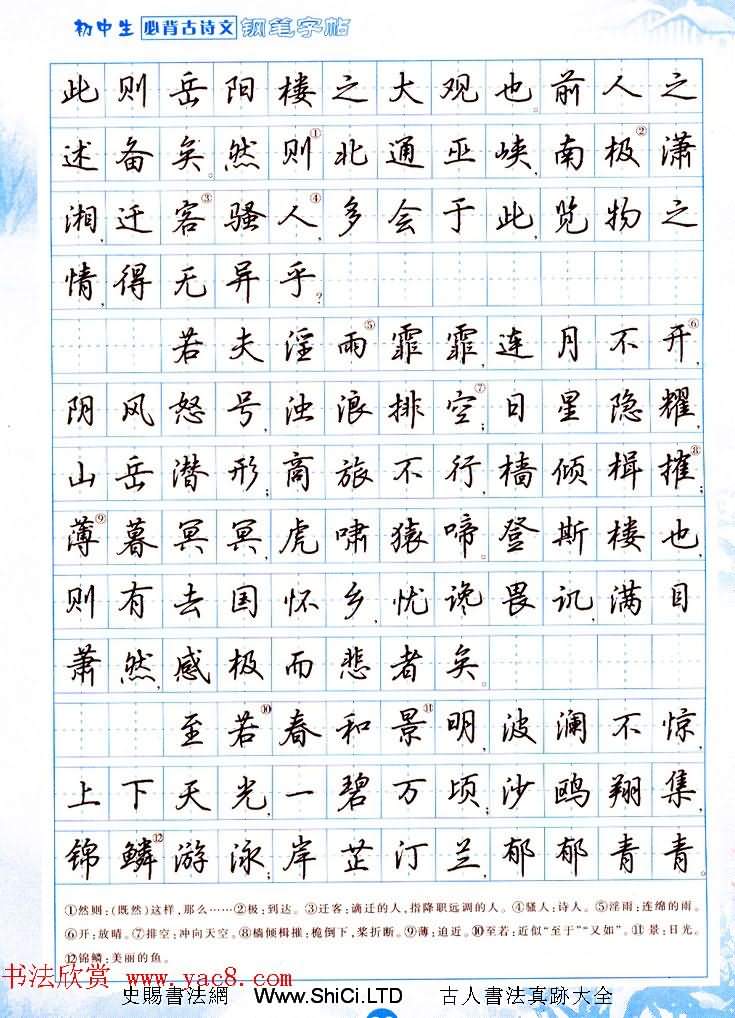 初中生 必背古诗文 钢笔字帖
此则岳阳楼之大观也。前人之
述备矣。然则①北通巫峡,南极②潇
湘,迁客③骚人④,多会于此,览物之
情,得无异乎?
若夫淫雨⑤霏霏,连月不开⑥,
阴风怒号,浊浪排空⑦;日星隐耀,
山岳潜形;商旅不行,樯倾楫摧⑧;
薄⑨暮冥冥,虎啸猿啼。登斯楼也,
则有去国怀乡,忧谗畏讥,满目
萧然,感极而悲者矣。
至若⑩春和景⑪明,波澜不惊,
上下天光,一碧万顷;沙鸥翔集,
锦鳞⑫游泳;岸芷汀兰,郁郁青青。
①然则:(既然)这样,那么……②极:到达。③迁客:谪迁的人,指降职远调的人。④骚人:诗人。⑤淫雨:连绵的雨。
⑥开:放晴。⑦排空:冲向天空。⑧樯倾楫摧:桅倒下,桨折断。⑨薄:迫近。⑩至若:近似“至于”“又如”。⑪景:日光。
⑫锦鳞:美丽的鱼。
书法欣赏 www.yac8.com
史賜書法網 Www.ShiCi.LTD 古人書法真跡大全